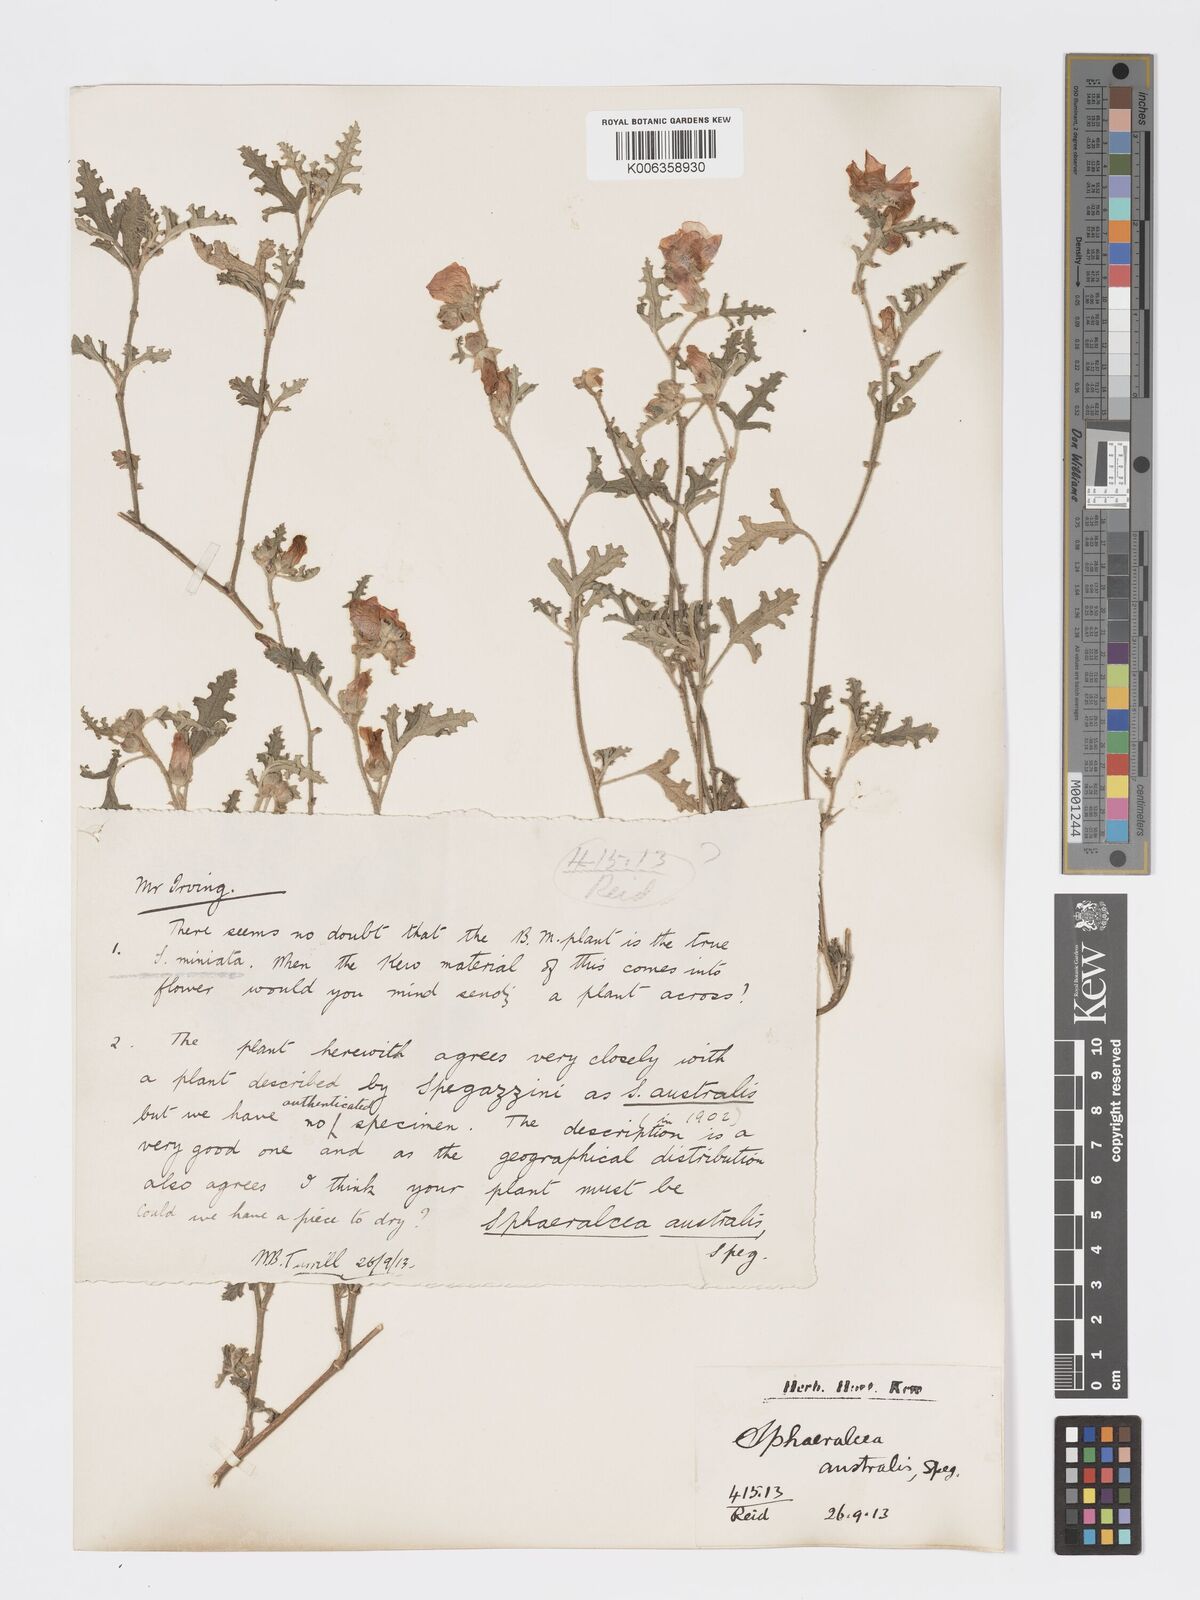 ROYAL BOTANIC GARDENS KEW
K006358930
415.13 ?
Reid
Mr Irving.
1. There seems no doubt that the B.M. plant is the true
S. miniata. When the Kew material of this comes into
flower would you mind sendg a plant across?
2. The plant herewith agrees very closely with
a plant described by Spegazzini as S. australis
(in 1902)
but we have no authenticated specimen. The description is a
very good one and as the geographical distribution
also agrees I think your plant must be
Could we have a piece to dry? Sphaeralcea australis,
Speg.
W.B. Turrill 26/9/13.
Herb. Hort. Kew
Sphaeralcea
australis, Speg.
415.13
Reid 26.9.13
inches
centimeters
Density
Don Williams
M001244
Kew
Royal Botanic Gardens
copyright reserved
0 1 2 3 4 5 6 7 8 9 10
cm